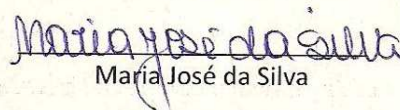 Maria José da Silva
Maria José da Silva